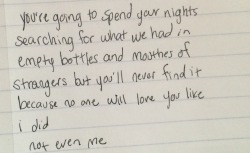 you're going to spend your nights
searching for what we had in
empty bottles and mouthes of
strangers but you'll never find it
because no one will love you like
i did
not even me